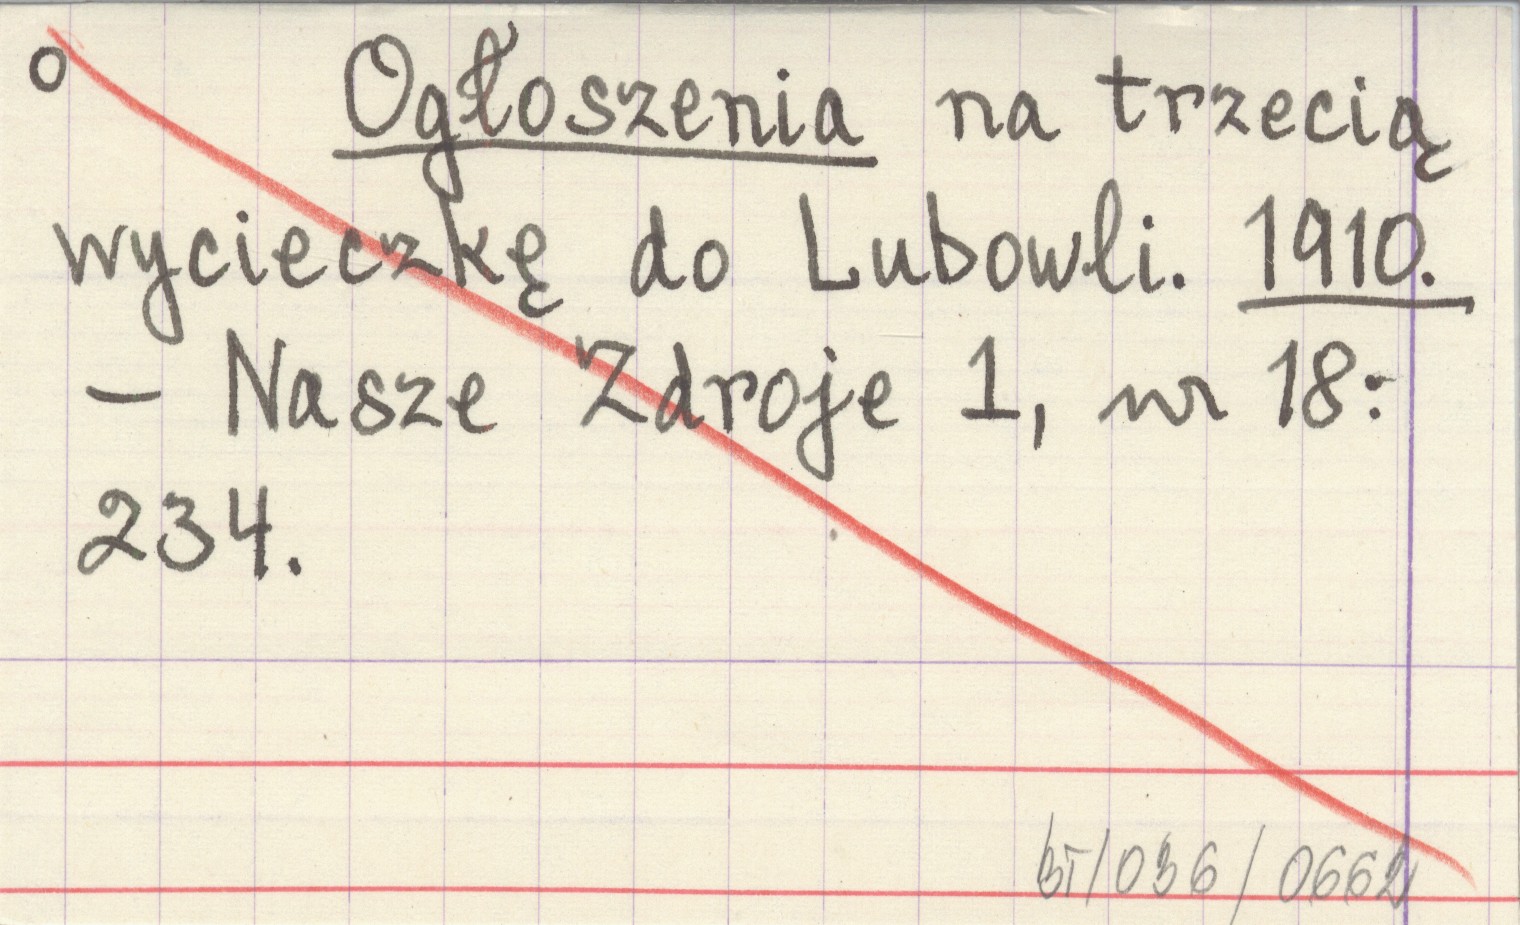 o Ogłoszenia na trzecią
wycieczkę do Lubowli. 1910.
— Nasze Zdroje 1, nr 18:
234.
BT/036/0662